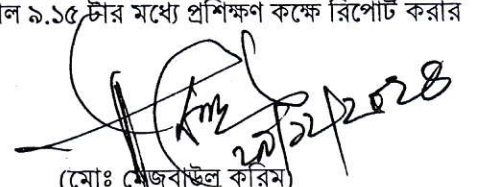 ল ৯.১৫ টার মধ্যে প্রশিক্ষণ কক্ষে রিপোর্ট করার
২৯/১২/২০২৪
(মোঃ মেজবাউল করিম)